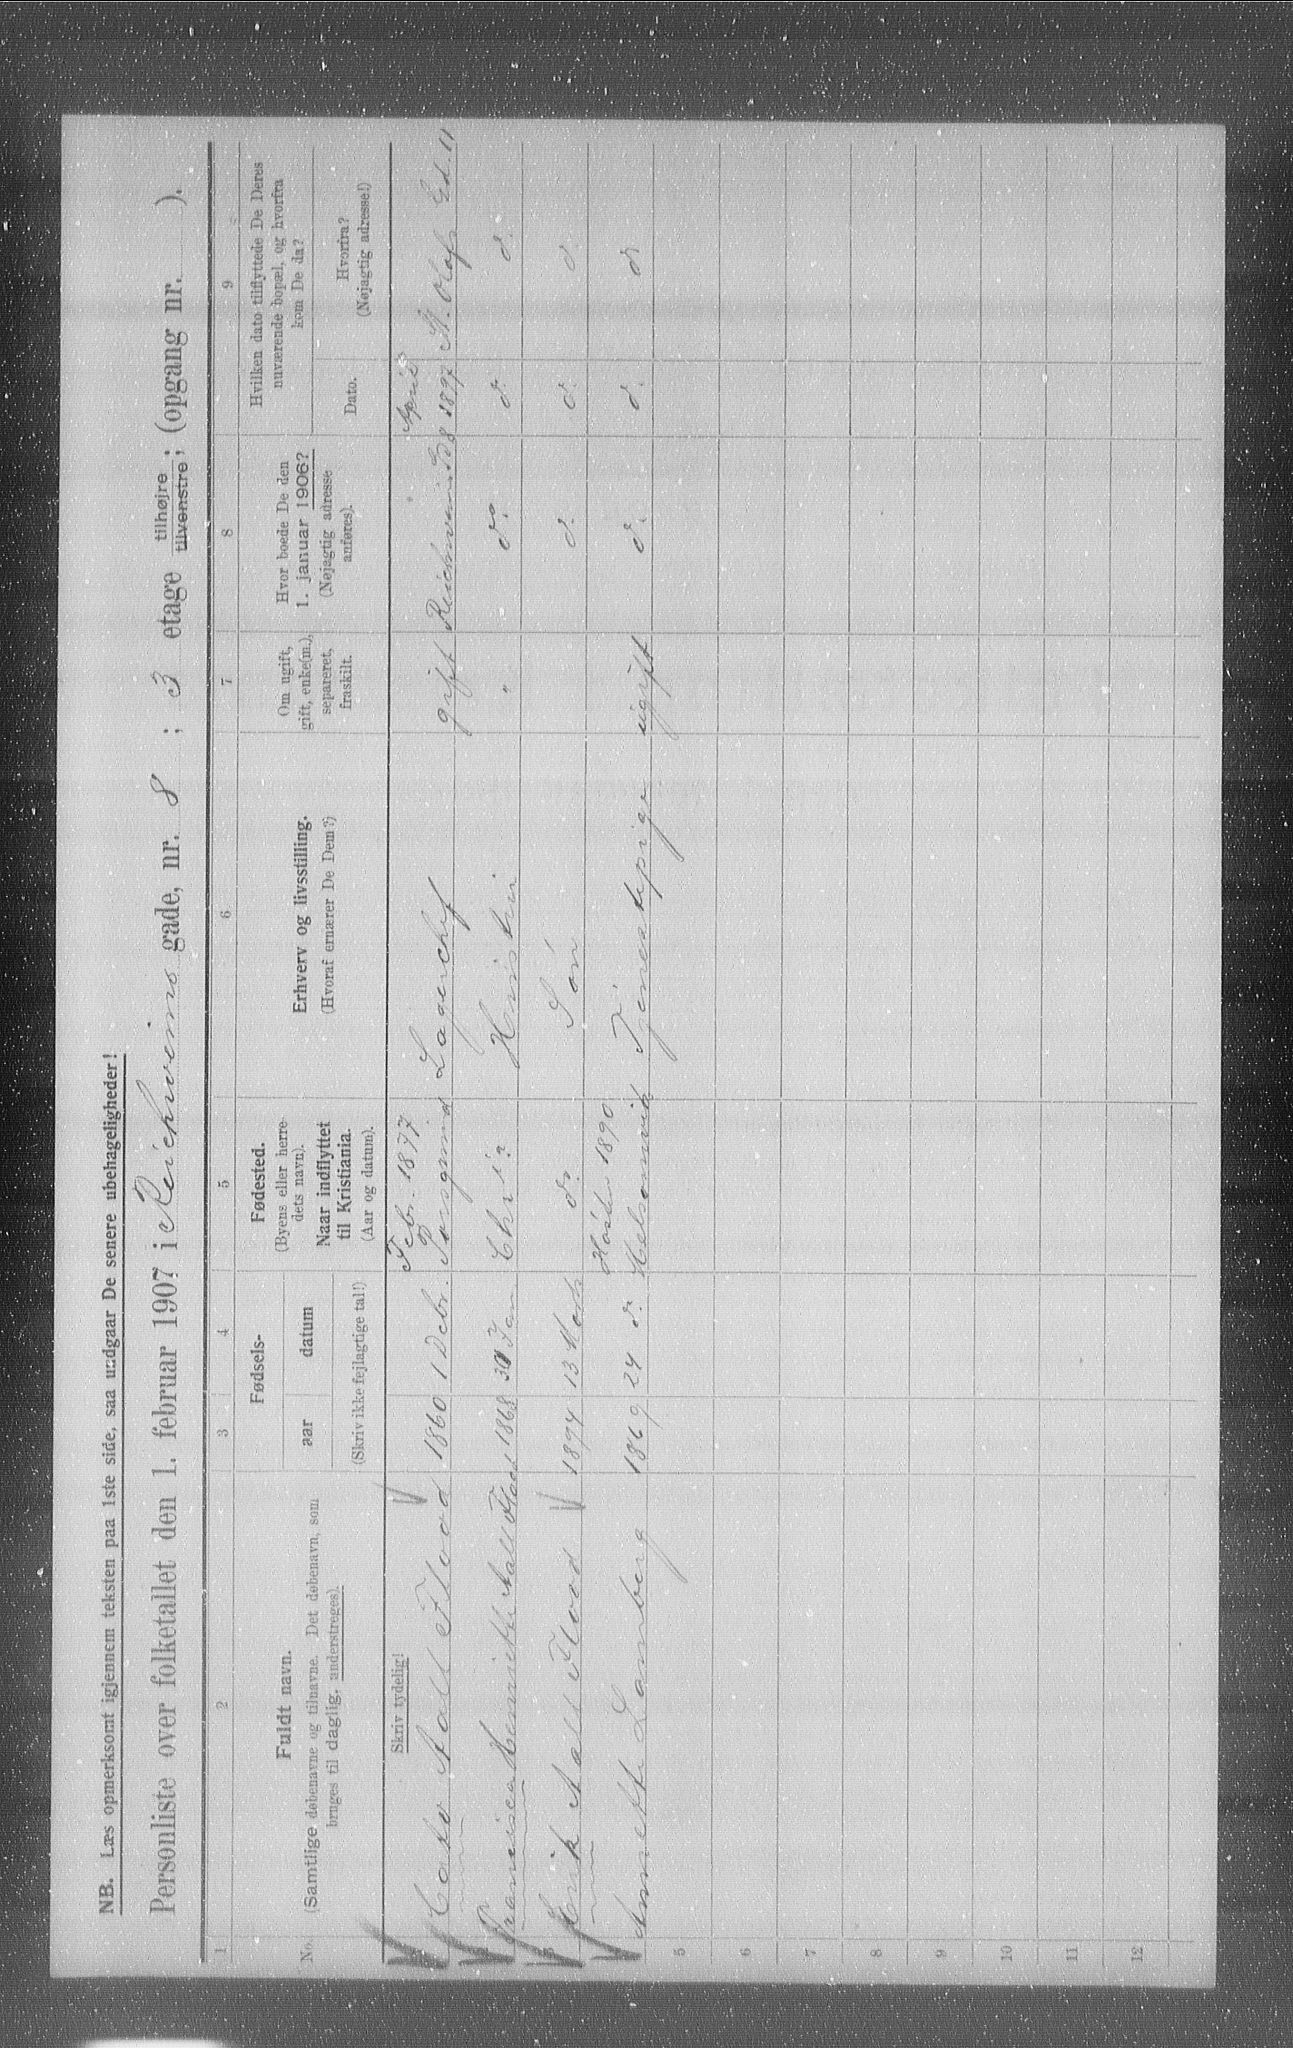 NB. Læs opmerksomt igjennem teksten paa 1ste side, saa undgaar De senere ubehageligheder!
Personliste over folketallet den 1. februar 1907 i Reichweins gade, nr. 8 ; 3 etage tilhøjre tilvenstre; (opgang nr. ).
1 2 3 4 5 6 7 8 9
No.
Fuldt navn.
(Samtlige døbenavne og tilnavne. Det døbenavn, som
bruges til daglig, understreges).
Fødsels-
aar datum
(Skriv ikke fejlagtige tal!)
Fødested.
(Byens eller herre-
dets navn).
Naar indflyttet
til Kristiania.
(Aar og datum).
Erhverv og livsstilling.
(Hvoraf ernærer De Dem?)
Om ugift,
gift, enke(m.),
separeret,
fraskilt.
Hvor boede De den
1. januar 1906?
(Nøjagtig adresse
anføres).
Hvilken dato tilflyttede De Deres
nuværende bopæl, og hvorfra
kom De da?
Dato.
Hvorfra?
(Nøjagtig adresse!)
Skriv tydelig!
Febr. 1877 April
Cato Aall Flood 1860 1 Debr. Porsgrund Lagerchef gift Reichweinsgd 8 1897 St. Olafs Gd. 11
Francisca Henriette Aall Flood 1868 30 Jan Chr.ia Hustru " do. d. d.
3 Erik Aall Flood 1894 13 Marts do Søn d. d. d.
Høsten 1890
Annette Lamberg 1869 24 d. Melsomvik Tjenestepige ugift d. d. d.
5
6
7
8
9
10
11
12